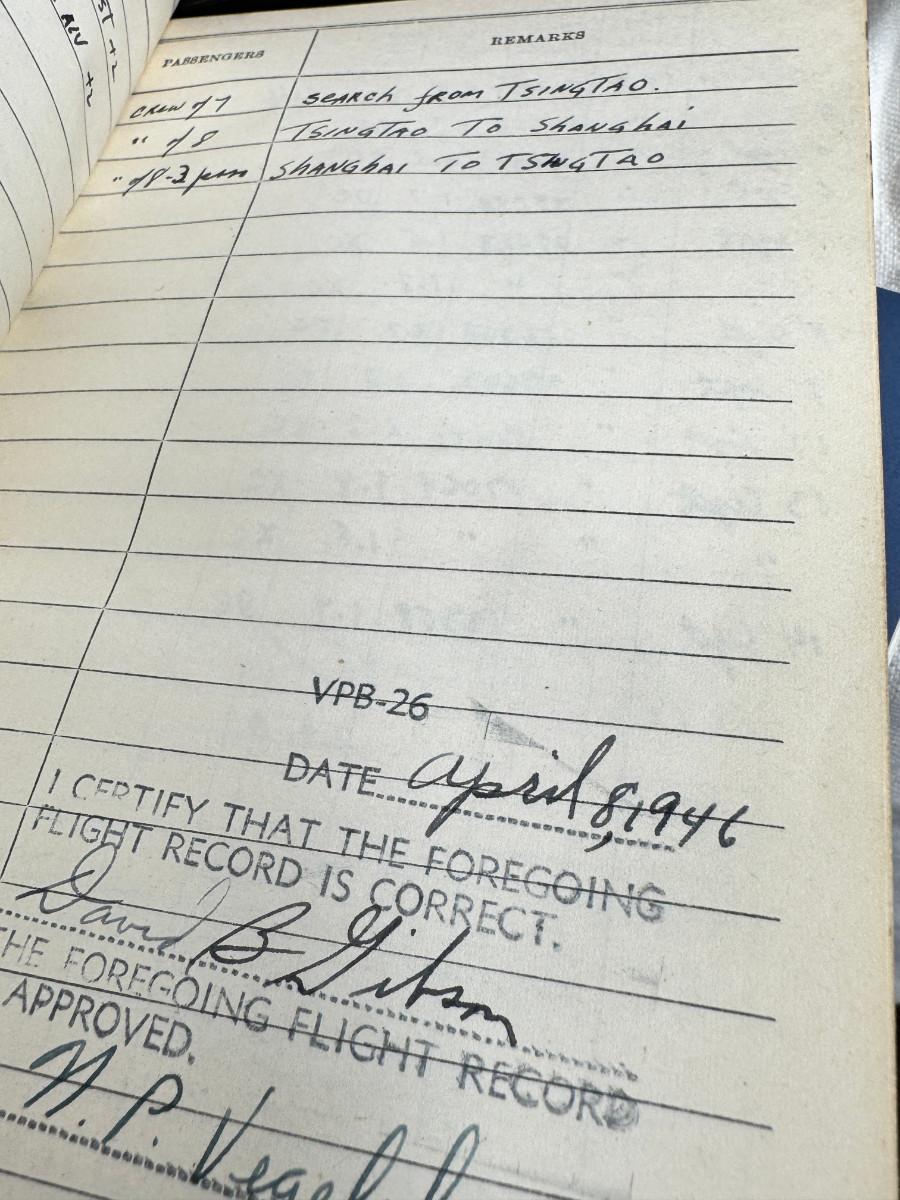 ST +2
ALV +2
PASSENGERS REMARKS
CREW of 7 SEARCH from TSINGTAO.
" of 8 TSINGTAO TO ShANGhAi
" of 8-3 pass ShANGhAi TO TSINGTAO
VPB-26
DATE April 8, 1946
I CERTIFY THAT THE FOREGOING
FLIGHT RECORD IS CORRECT.
David B Gibson
THE FOREGOING FLIGHT RECORD
APPROVED.
N. P.